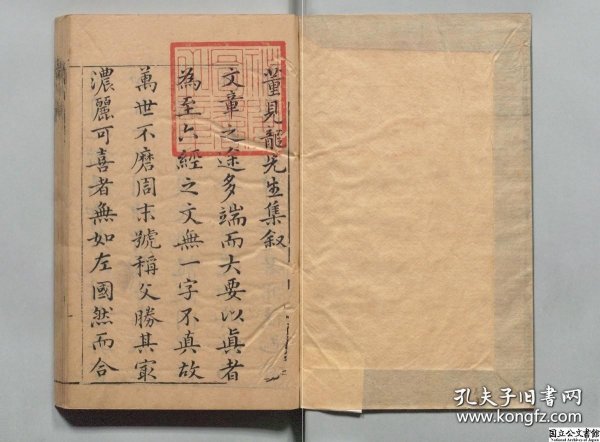 董見龍先生集叙
文章之途多端而大要以眞者
為至六經之文無一字不真故
萬世不磨周末號稱文勝其㝡
濃麗可喜者無如左國然而合
孔夫子旧书网
www.kongfz.com
国立公文書館
National Archives of Japan